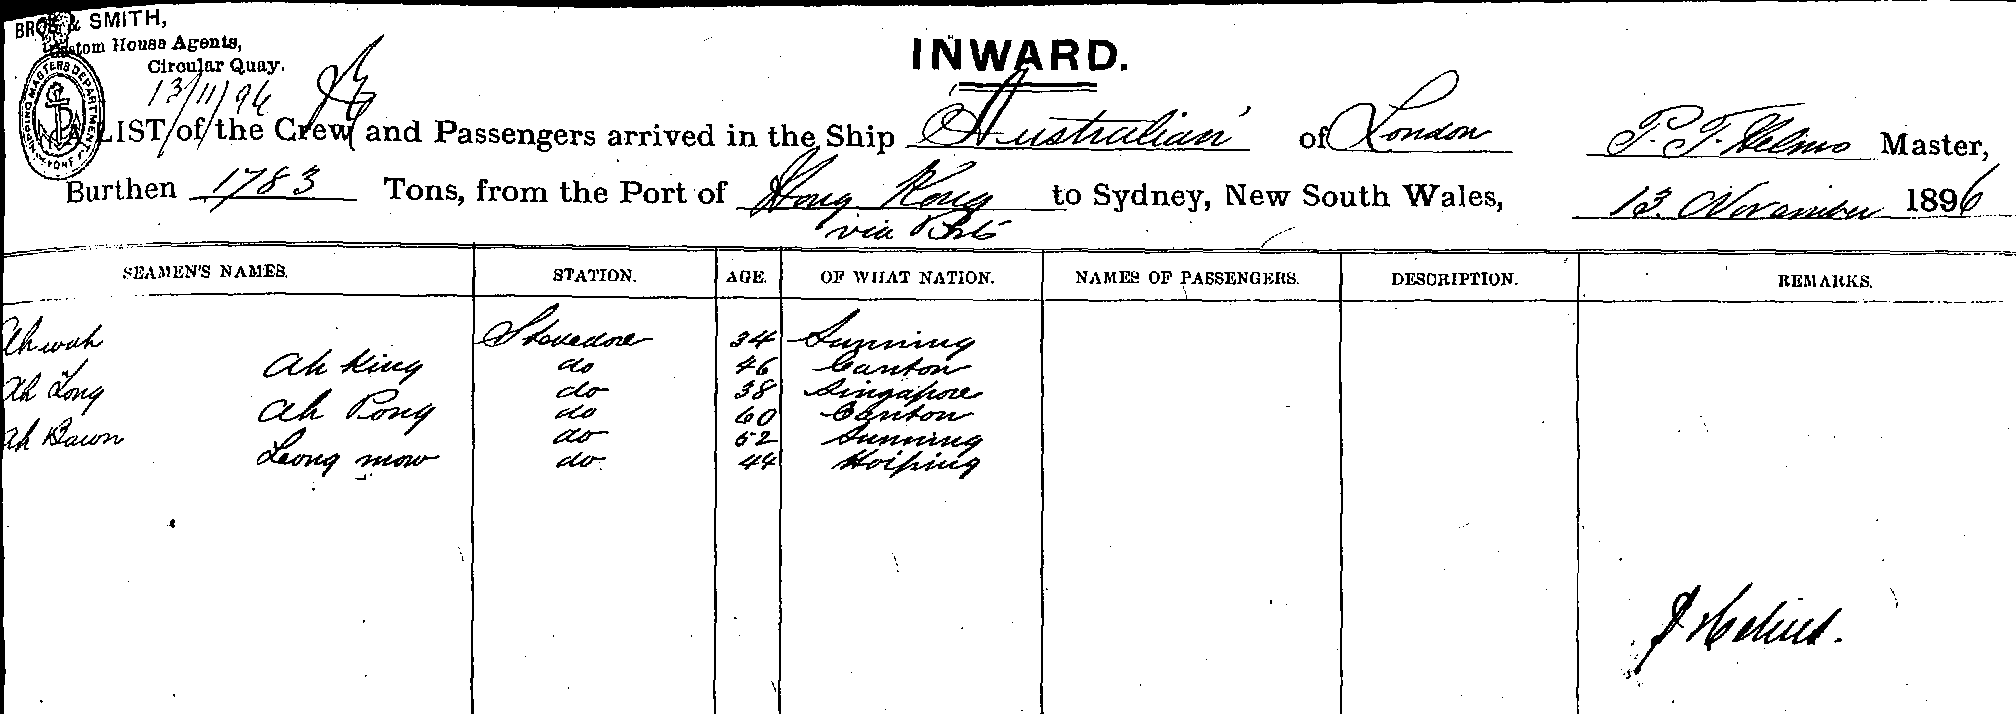 BROS & SMITH,
Custom House Agents,
Circular Quay.
13/11/96
SHIPPING MASTERS DEPARTMENT
INWARD.
A LIST of the Crew and Passengers arrived in the Ship Australian of London P. T. Helms Master,
Burthen 1783 Tons, from the Port of Hong Kong to Sydney, New South Wales, 13 November 1896
via Ports
SEAMEN'S NAMES. STATION. AGE. OF WHAT NATION. NAMES OF PASSENGERS. DESCRIPTION. REMARKS.
Ah wah Stevedore 34 Sunning
Ah King do 46 Canton
Ah Long do 38 Singapore
Ah Pong do 60 Canton
Ah Bawn do 52 Sunning
Leong mow do 44 Hoiping